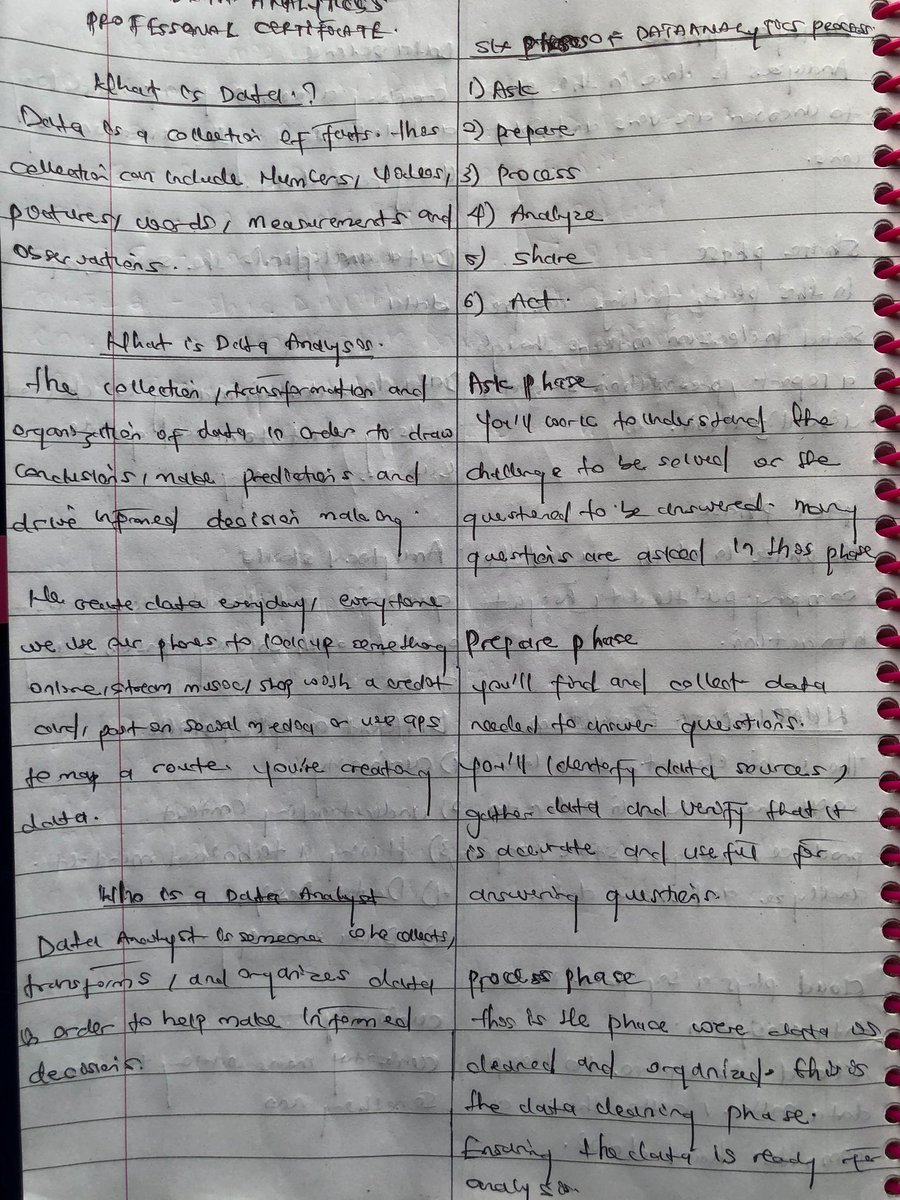 DATA ANALYTICS
PROFESSIONAL CERTIFICATE.
What is Data.?
Data is a collection of facts. this
collection can include Numbers, Videos,
pictures, words, measurements and
observations.
What is Data Analysis.
the collection, transformation and
organization of data in order to draw
conclusions, make predictions and
drive informed decision making.
We create data everyday, everytime
we use our phones to lookup something
online, stream music, shop with a credit
card, post on social media or use gps
to map a route. you're creating
data.
Who is a Data Analyst
Data Analyst is someone who collects,
transforms, and organizes data
in order to help make informed
decisions.
OF DATA ANALYTICS process.
1) Ask
2) prepare
3) process
4) Analyze
5) share
6) Act.
Ask phase
You'll work to understand the
challenge to be solved or the
questioned to be answered. many
questions are asked in this phase
Prepare phase
you'll find and collect data
needed to answer questions.
you'll identify data sources,
gather data and verify that it
is accurate and useful for
answering questions.
process phase
this is the phace were data is
cleaned and organized. this is
the data cleaning phase.
Ensuring the data is ready for
analysis.